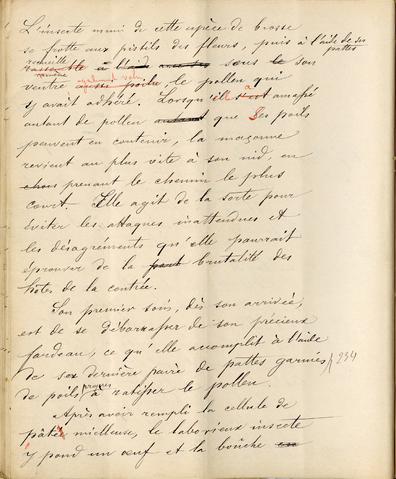 L'insecte muni de cette espèce de brosse
se frotte aux pistils des fleurs, puis à l'aide de ses pattes
recueille sous le son
ramène
ventre velu, le pollen qui
y avait adhéré. Lorsqu'elle a amassé
autant de pollen autant que ses poils
peuvent en contenir, la maçonne
revient au plus vite à son nid, en
prenant le chemin le plus
court. Elle agit de la sorte pour
éviter les attaques inattendues et
les désagréments qu'elle pourrait
éprouver de la part brutalité des
hôtes de la contrée.
Son premier soin, dès son arrivée,
est de se débarrasser de son précieux
fardeau, ce qu'elle accomplit à l'aide
de sa dernière paire de pattes garnies 234
de poils propres à ratisser le pollen.
Après avoir rempli la cellule de
pâtée mielleuse, le laborieux insecte
y pond un œuf et la bouche